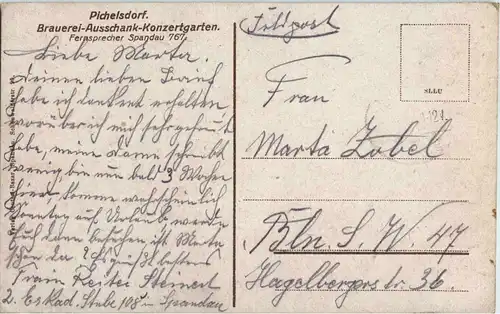 Pichelsdorf.
Brauerei-Ausschank-Konzertgarten.
Fernsprecher Spandau 767.
Liebe Marta.
Deinen lieben Brief
habe ich dankend erhalten
worüber ich mich sehr gefreut
habe, meine Dame schreibt
wenig bin nun bald 3 Wochen
hier, komme wahrscheinlich
Sonntag auf Urlaub werde
Euch dann besuchen ist Martha
schon da? Es grüßt bestens
Train Reiter Steinert
2. Eskad. Stube 108 in Spandau
Feldpost
SLLU
Frau
Marta Zobel
Bln. S. W. 47
Hagelbergerstr. 36.